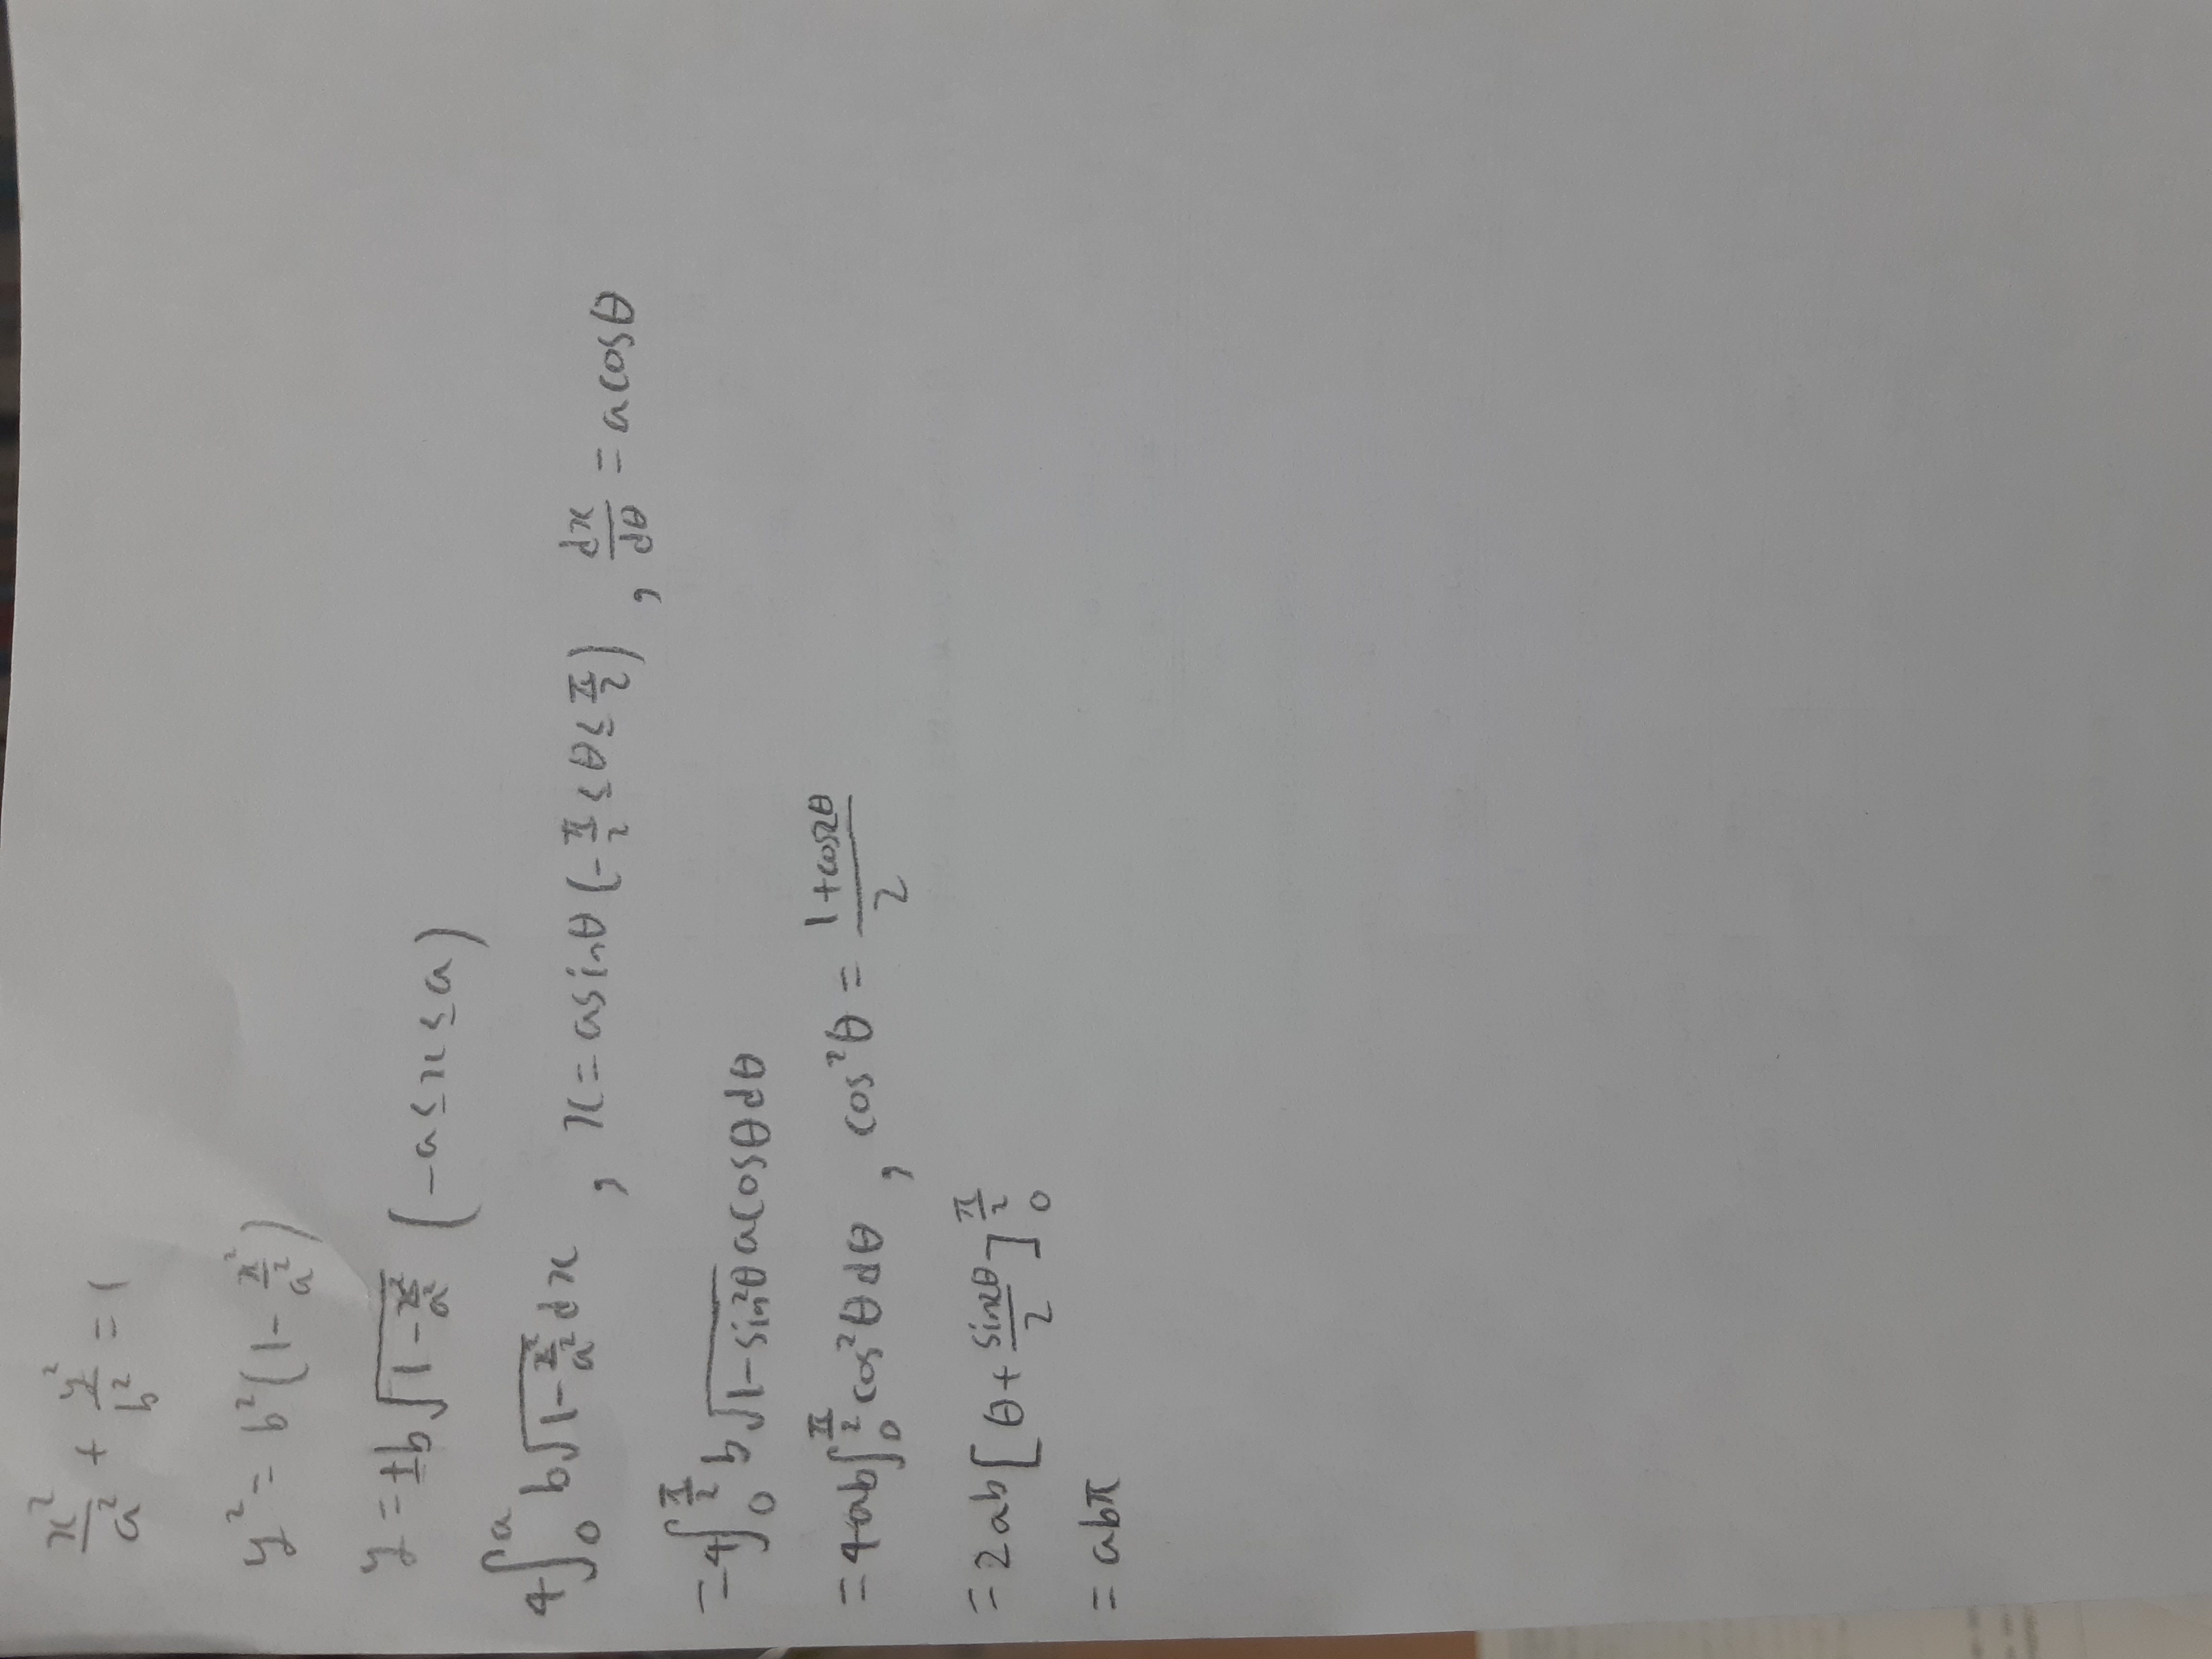 x²/a² + y²/b² = 1
y² = b²(1 - x²/a²)
y = ±b√(1 - x²/a²) (-a ≤ x ≤ a)
4∫₀ᵃ b√(1 - x²/a²) dx , x = a sinθ (-π/2 ≤ θ ≤ π/2) , dx/dθ = a cosθ
= 4∫₀^(π/2) b√(1 - sin²θ) a cosθ dθ
= 4ab∫₀^(π/2) cos²θ dθ , cos²θ = (1 + cos2θ)/2
= 2ab[θ + sin2θ/2]₀^(π/2)
= abπ